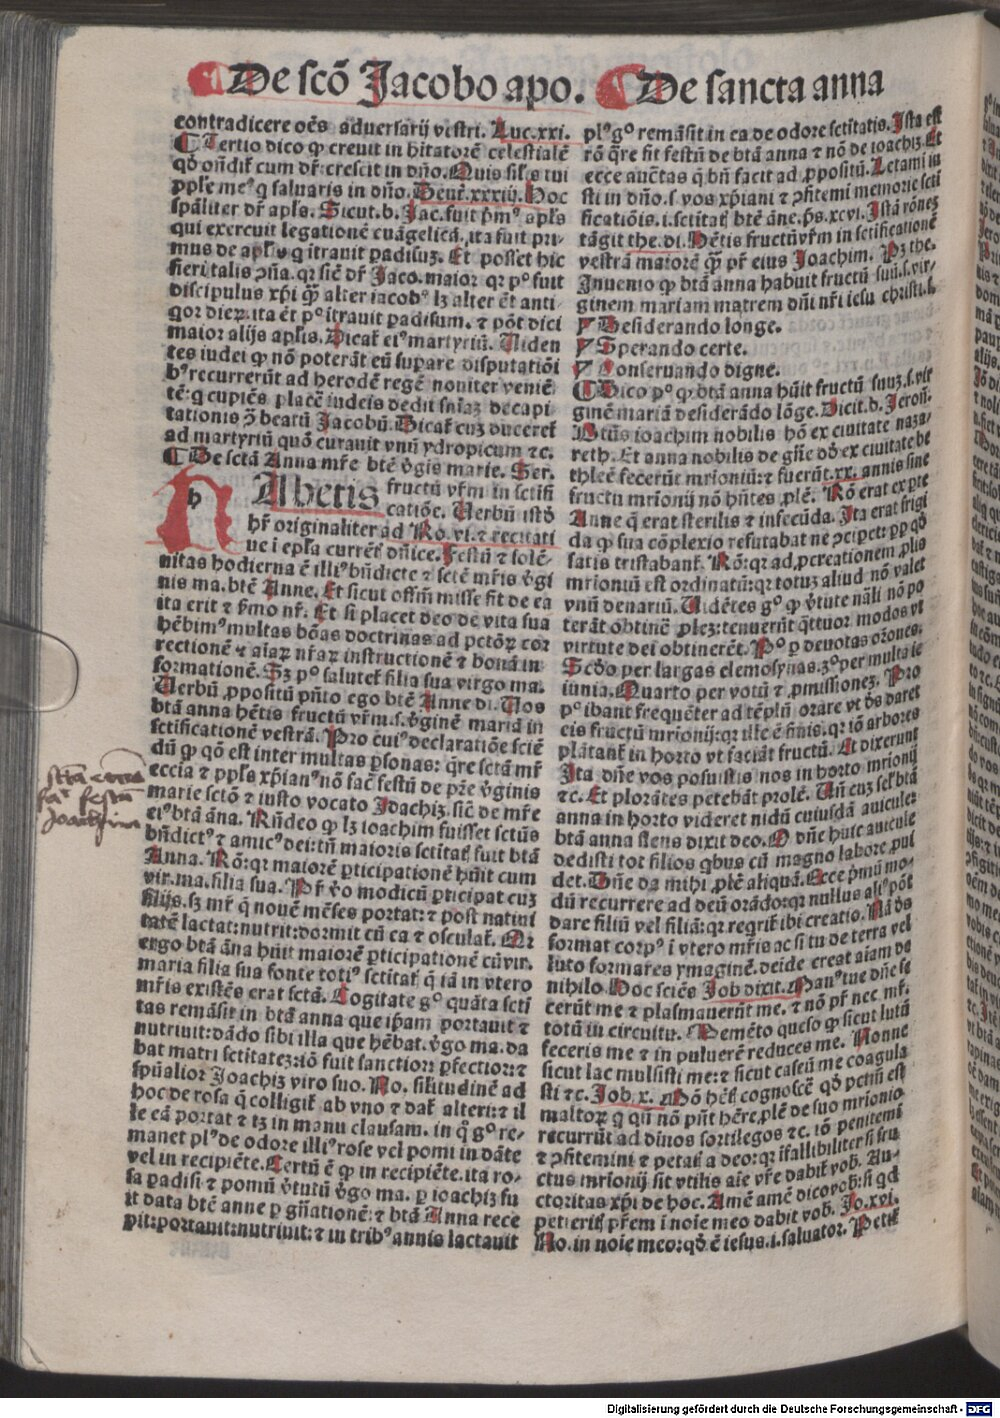 De scō Jacobo apo. De sancta anna
contradicere oēs adversarij vestri. Luc.xxi.
Tertio dico ꝙ crevit in hitatorē celestialē
qꝛ oñdit̄ cum dr̄: crescit in dño. Quis sil̓is tui
ppl̓e meꝰ q saluaris in dño. Deut̓.xxxiij. Hoc
sp̄aliter dr̄ apl̓s. Sicut .b. Jac. fuit p̄mꝰ apl̓s
qui exercuit legationē euāgelicā, ita fuit pri-
mus de apl̓is q itravit padisuꝫ. Et posset hic
fieri talis ꝯñia. qꝛ sic̄ dr̄ Jaco. maior qꝛ pꝰ fuit
discipulus xp̄i q̄ꝫ alter iacobꝰ lꝫ alter ēt anti-
qor
maior alijs apl̓is. Dicat̄ eiꝰ martyriū. Viden
tes iudei ꝙ nō poterāt eū supare disputatiōi
bꝰ recurrerūt ad herodē regē noniter veniē-
tē: q cupiēs placē iudeis dedit sñiaꝫ decapi
tationis ꝯ beatū Jacobū. Dicat̄ cuꝫ duceret̄
ad martyriū quō curauit vnū ydropicum ⁊c.
De sctā Anna mr̄e btē v̓gis marie. Ser.
HAbetis fructū vr̄m in sctifi
catiōe. Verbū istō
hr̄ originaliter ad Ro. vi. ⁊ recitati
ue i epl̓a currēt̄ dñice. Festū ⁊ solē-
nitas hodierna ē illiꝰ bñdicte ⁊ sctē mr̄is v̓gi
nis ma. btē Anne. Et sicut offm̄ misse fit de ea
ita erit ⁊ p̓mo nr̄. Et si placet deo de vita sua
hēbimꝰ multas bōas doctrinas ad pctōꝝ cor
rectionē ⁊ aīaꝝ nr̄aꝝ instructionē ⁊ bonā in
formationē. Sꝫ pꝰ salutet̄ filia sua virgo ma.
Verbū ꝓpositū pñto ego btē Anne di. Vos
btā anna hētis fructū vr̄m .s. v̓ginē mariā in
sctificationē vestrā. Pro cuiꝰ declaratiōe sciē
dū ꝙ qō est inter multas psonas: q̄re sctā mr̄
eccia ⁊ ppl̓s xp̄ianꝰ nō fac̄ festū de pr̄e v̓ginis
marie sctō ⁊ iusto vocato Joachiꝫ. sic̄ de mr̄e
eiꝰ btā āna. Rñdeo ꝙ lꝫ ioachim fuisset sctūs
bñdictꝰ ⁊ amicꝰ dei: tñ maioris sctitat̄ fuit btā
Anna. Rō: qꝛ maiorē pticipationē hūit cum
vir. ma. filia sua. Pr̄ v̓o modicū pticipat cuꝫ
filijs. sꝫ mr̄ q̄ nouē mēses portat: ⁊ post natiui
tatē lactat: nutrit: dormit cū ea ⁊ osculat̄. Qꝛ
ergo btā āna hūit maiorē pticipationē cū vir.
maria filia sua fonte totiꝰ sctitat̄ q̄ iā in vtero
mr̄is existēs erat sctā. Cogitate gꝰ quāta scti
tas remāsit in btā anna que ip̄am portauit ⁊
nutriuit: dādo sibi illa que hēbat. v̓go ma. da
bat matri sctitateꝫ: iō fuit sanctior: pfectior: ⁊
sp̄ualior Joachiꝫ viro suo. No. sil̓itudinē ad
hoc de rosa q̄ colligit̄ ab vno ⁊ dat̄ alteri: ⁊ il
le eā portat ⁊ tꝫ in manu clausam. in q̄ gꝰ re-
manet plꝰ de odore illiꝰ rose vel pomi in dāte
vel in recipiēte. Certū ē ꝙ in recipiēte. ita ro-
sa padisi ⁊ pomū v̓tutū v̓go ma. p ioachiꝫ fu
it data btē anne p gñationē: ⁊ btā Anna rece
pit: portauit: nutriuit: ⁊ in tribꝰ annis lactauit
plꝰ gꝰ remāsit in ea de odore sctitatis. Ista est
rō q̄re fit festū de btā anna ⁊ nō de ioachiꝫ. Et
ecce auc̄tas q̄ bñ facit ad ꝓpositū. Letami iu
sti in dño .s. vos xp̄iani ⁊ ꝯfitemi memorie scti
ficatiōis .i. sctitat̄ btē āne. ps. xcvi. Istā rōneꝫ
tāgit the. di. Hētis fructū vr̄m in sctificationē
vestrā maiorē q̄ꝫ pr̄ eius Joachim. Pꝫ the.
Inuenio ꝙ btā anna habuit fructū suū .s. vir-
ginem mariam matrem dñi nr̄i iesu christi. s.
Desiderando longe.
Sperando certe.
Conseruando digne.
Dico pꝰ ꝙ btā anna hūit fructū suuꝫ .s. vir
ginē mariā desiderādo lōge. Dicit .b. Jeroñ.
Btūs ioachim nobilis hō ex ciuitate naza-
reth. Et anna nobilis de gñe dd̓ ex ciuitate be
thleē fecerūt mrioniū: ⁊ fuerūt .xx. annis sine
fructu mrionij nō hñtes plē. Rō erat ex pte
Anne q̄ erat sterilis ⁊ infecūda. Ita erat frigi
da ꝙ sua cōplexio refutabat ne ꝯcipet: pp qd̓
satis tristabant̄. Rō: qꝛ ad ꝓcreationem plis
mrionū est ordinatū: qꝛ totuꝫ aliud nō valet
vnū denariū. Vidētes gꝰ ꝙ v̓tute nāli nō po
terāt obtinē pleꝫ: tenuerūt q̄ttuor modos vt
virtute dei obtinerēt. Pꝰ p deuotas orōnes.
Scd̓o per largas elemosynas. 3ꝰ per multa ie
iunia. Quarto per votū ⁊ ꝓmissioneꝫ. Pro
pꝰ ibant frequēter ad tēplū orare vt ds̄ daret
eis fructū mrionij: qꝛ ille ē finis. qꝛ iō arbores
plātant̄ in horto vt faciāt fructū. Et dixerunt
Ita dñe vos posuistis nos in horto mrionij
⁊c. Et plorātes petebāt prolē. Vñ cuꝫ sel̓ btā
anna in horto videret nidū cuiusdā auicule:
btā anna flens dixit deo. O dñe huic auicule
dedisti tot filios qbus cū magno labore pui
det. Dñe da mihi plē aliquā. Ecce p̄mū mo-
dū recurrere ad deū orādo: qꝛ nullus aliꝰ pōt
dare filiū vel filiā: qꝛ reqrit̄ ibi creatio. Nā ds̄
format corpꝰ i vtero mr̄is ac si tu de terra vel
luto formares ymaginē. deide creat aīam de
nihilo. Hoc sciēs Job dixit. Manꝰ tue dñe fe
cerūt me ⁊ plasmauerūt me. ⁊ nō pr̄ nec mr̄.
totū in circuitu. Memēto queso ꝙ sicut lutū
feceris me ⁊ in puluerē reduces me. Nonne
sicut lac mulsisti me: ⁊ sicut caseū me coagula
sti ⁊c. Job. x. Nō hēt̄ cognoscē qd̓ pctm̄ est
maltoꝝ q qñ nō pñt hēre plē de suo mrionio
recurrūt ad diuos sortilegos ⁊c. iō penitemi
⁊ ꝯfitemini ⁊ petat̄ a deo: qꝛ ifallibiliter si fru
ctus mrionij sit vtilis aīe vr̄e dabit̄ vob. Au-
ctoritas xp̄i de hoc. Amē amē dico vob: si qd̓
petieritis pr̄em i noīe meo dabit vob. Jo. xvi.
No. in noīe meo: qd̓ ē iesus .i. saluator. Petit̄
Joachim
Digitalisierung gefördert durch die Deutsche Forschungsgemeinschaft - DFG